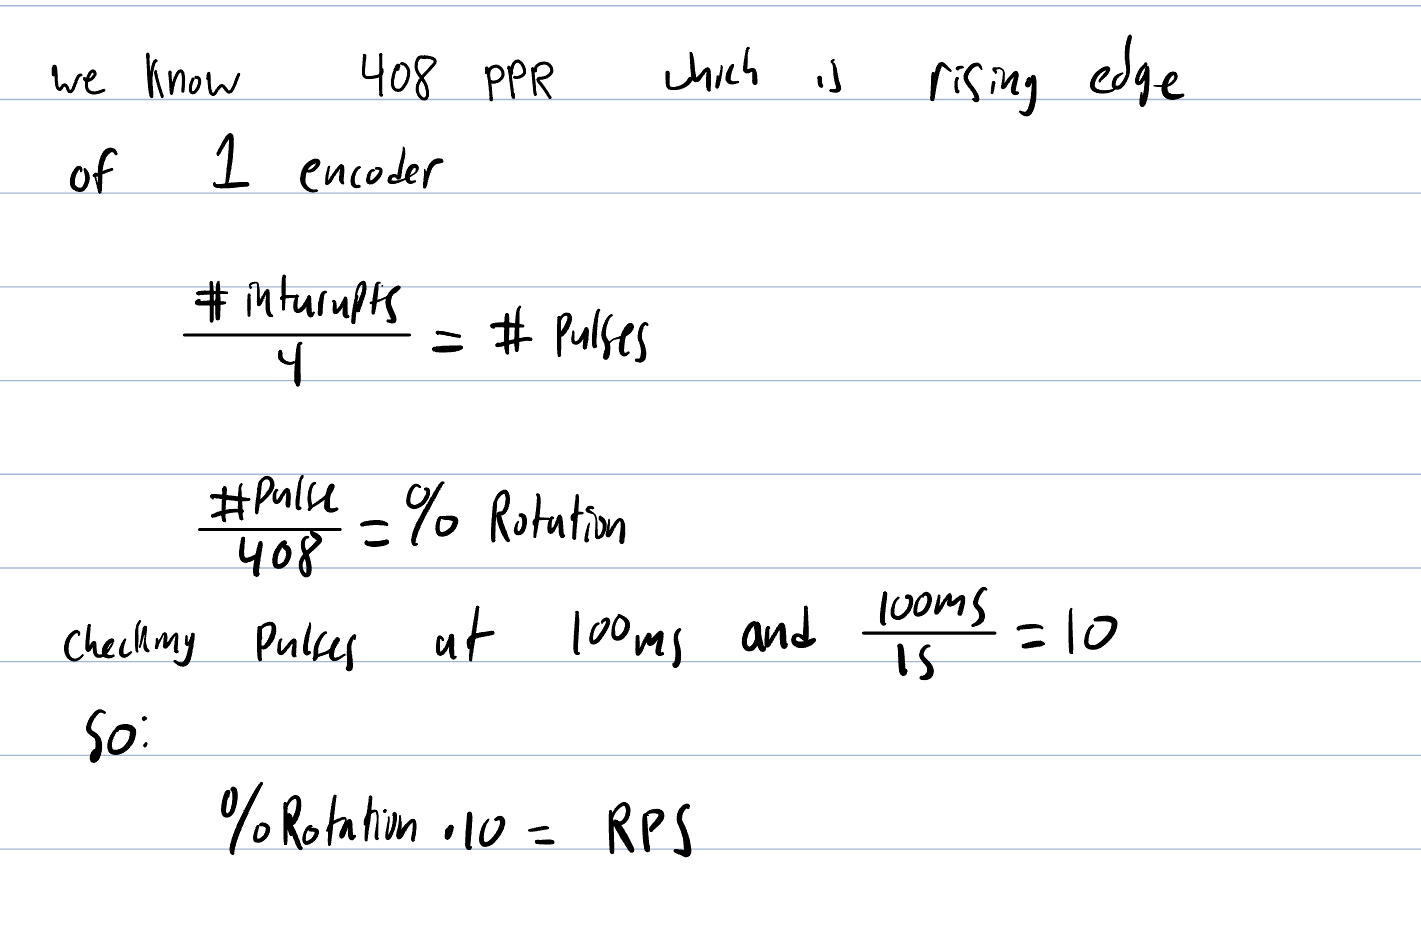 we know 408 PPR which is rising edge
of 1 encoder
# inturupts / 4 = # Pulses
#Pulse / 408 = % Rotation
checking Pulses at 100ms and 100ms / 1s = 10
So:
% Rotation · 10 = RPS